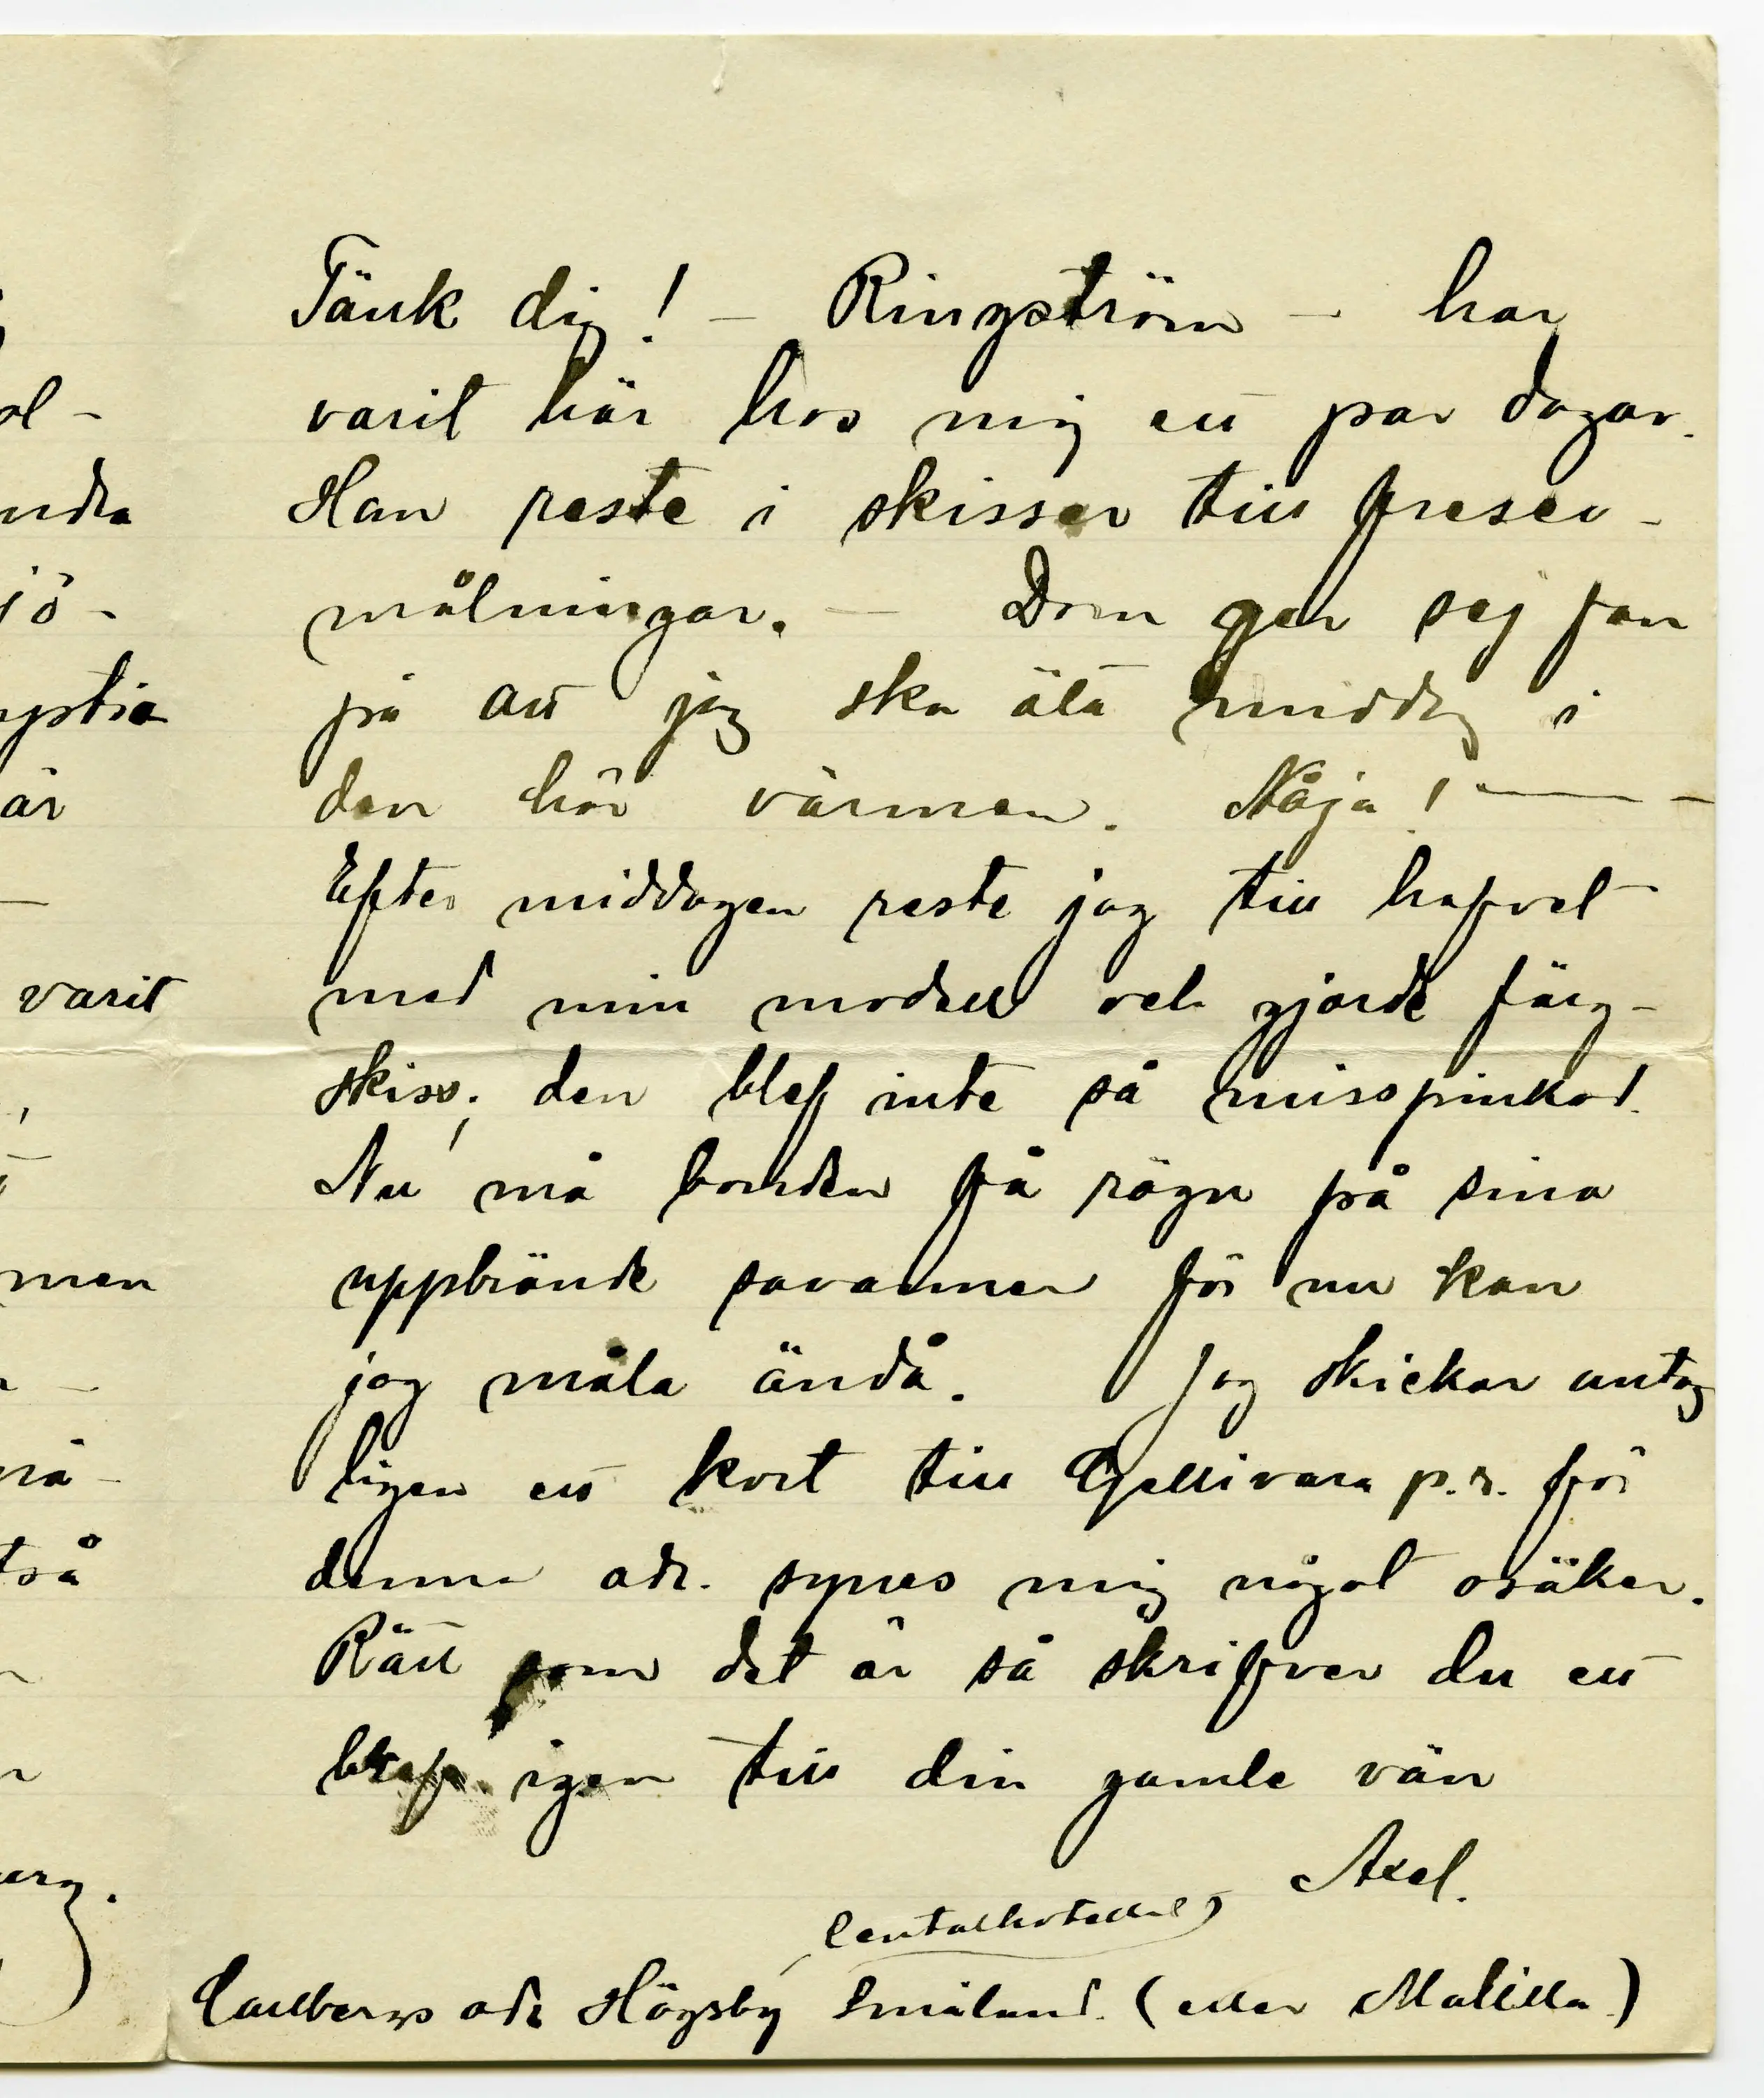 ol-
ndra
jö-
är
varit
men
må-
tså
erg.
Tänk dig! – Ringström – har
varit här hos mig ett par dagar.
Han reste i skisser till fresco-
målningar. — Dom ger sej fan
på att jag ska äta middag i
den här värmen. Nåja! — –
Efter middagen reste jag till hafvet
med min modell och gjorde färg-
skiss; den blef inte så misspinkad.
Nu må bonden få rägn på sina
uppbrände savanner för nu kan
jag måla ändå. Jag skickar antag
ligen ett kort till Gellivara p.r. för
denna adr. synes mig något osäker.
Rätt som det är så skrifver du ett
bref igen till din gamle vän
Axel.
Centalhotellet
Carlbergs adr Högsby Småland. (eller Målilla)